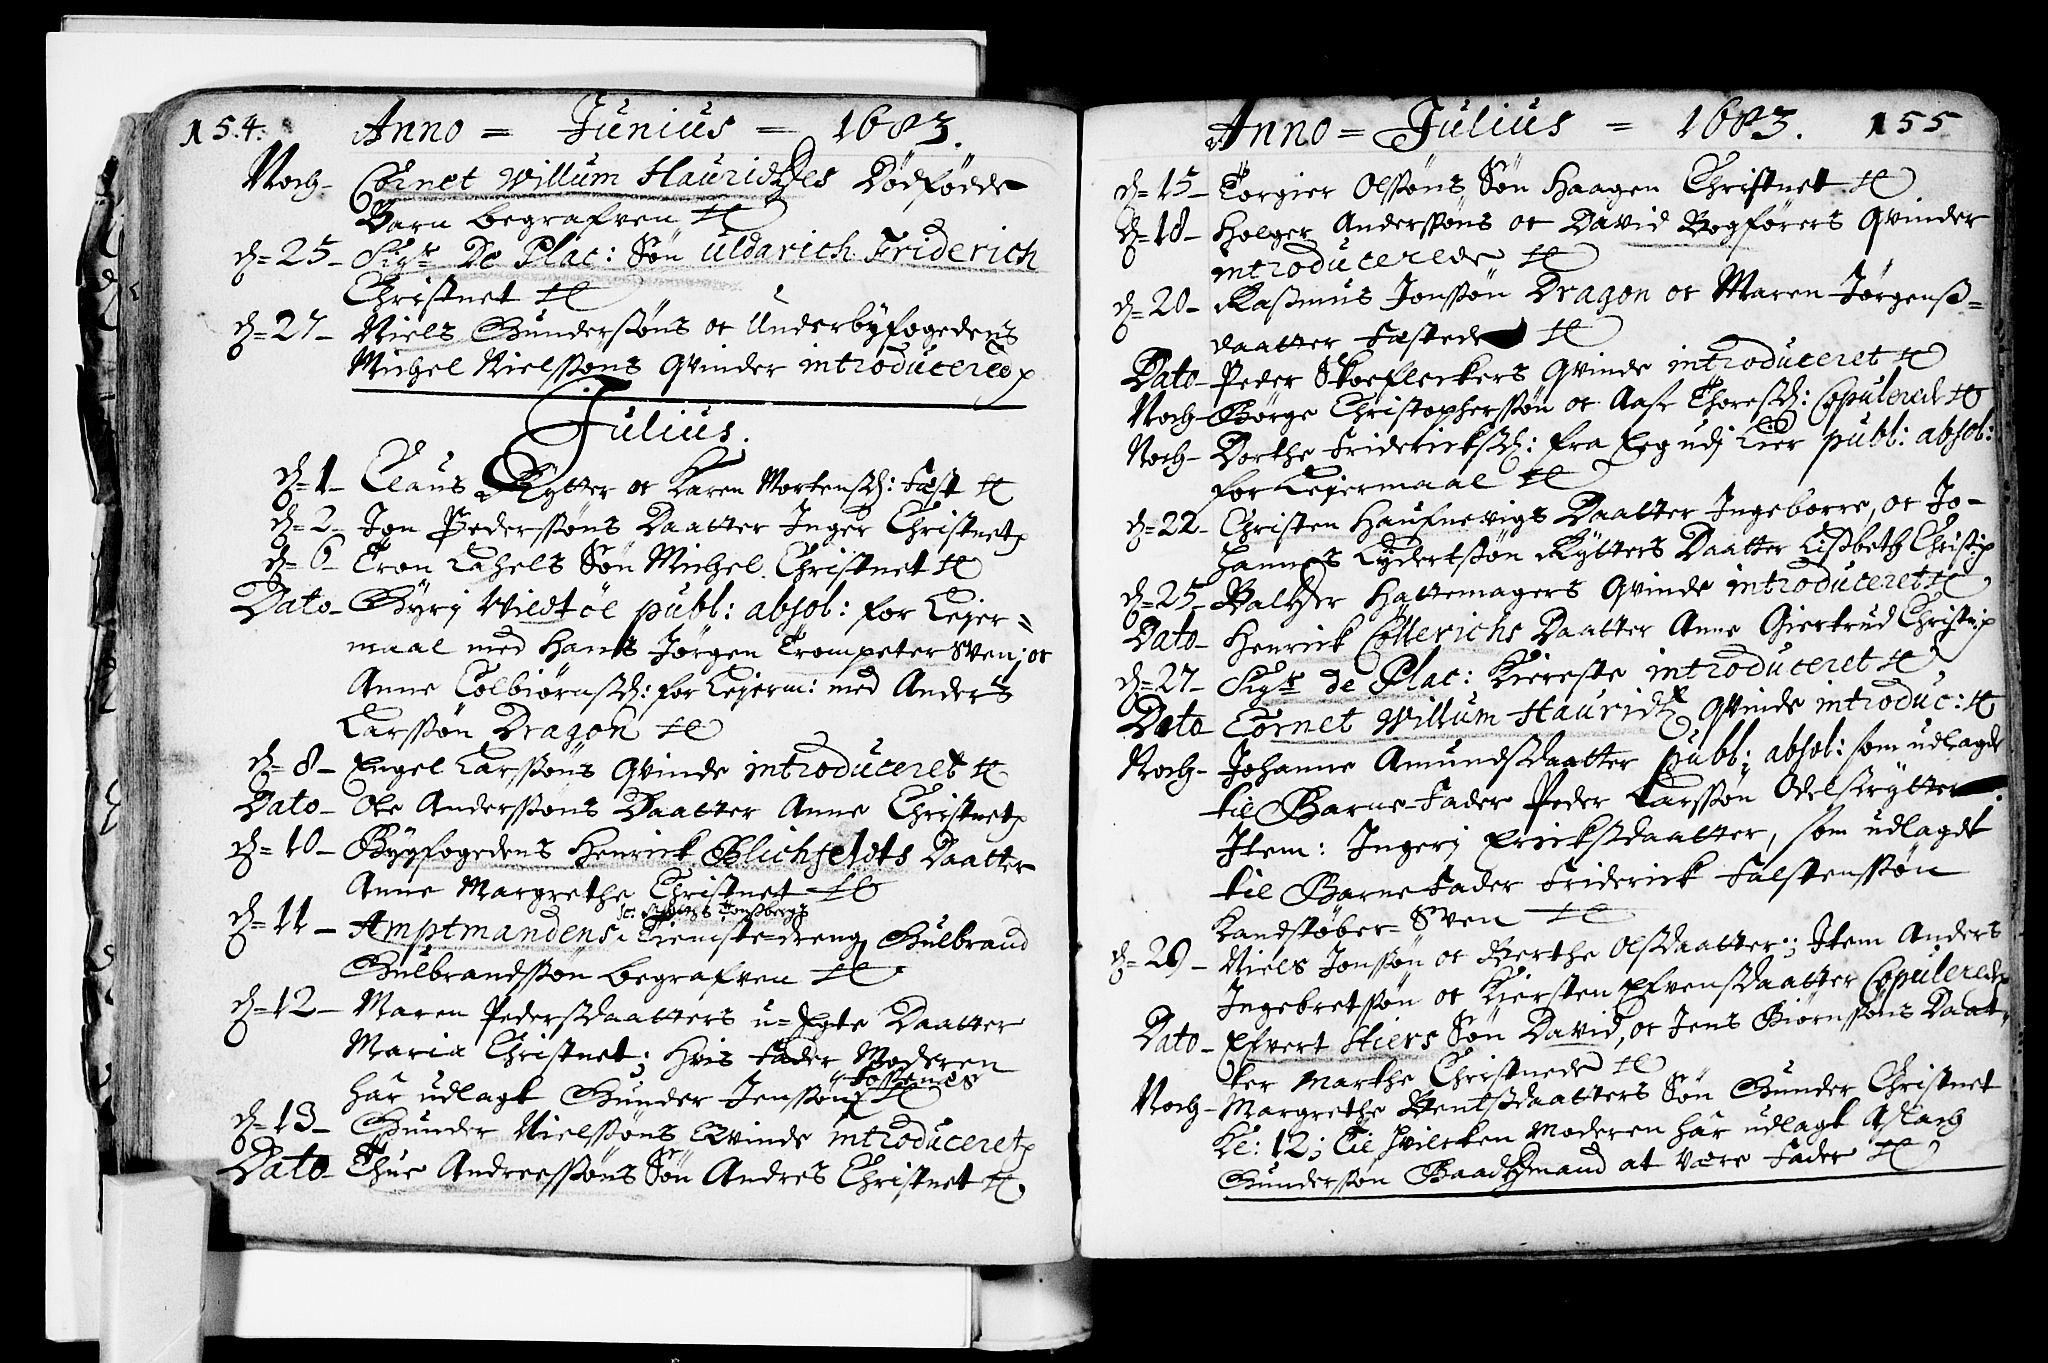 154.
Anno = Junius = 1683.
Noch- Cornet Willum Hauridtzes Dödfödde
Barn begrafven
d= 25- Sigr De Plac: Sön Uldarich Friderich
Christnet
d= 27- Niels Gunderssöns oc Underbyfogedens
Michel Nielssöns Qvinder introducered
Julius.
d= 1- Claus Rytter oc Karen Mortensd: Fæst
d= 2- Jon Pederssöns Daatter Inger Christnet
d= 6- Tron Lahels Sön Michel Christnet
Dato- Gyrj Viedtöe publ: absol: for Leyer=
maal med Hans Jörgen Trompeter Sven; oc
Anne Tolbiörnsd: for Leyerm: med Anders
Larssön Dragon
d= 8- Engel Larssöns Qvinde introduceret
Dato- Ole Anderssöns Daatter Anne Christnet
d= 10- Byfogedens Henrick Blichfeldts Daatter
Anne Margrethe Christnet
d= 11- Amptmandens Tieniste=dreng Gulbrand
Gulbrandssön begrafven
d= 12- Maren Pedersdaatters u=Egte Daatter
Maria Christnet; Hvis Fader Moderen
har udlagt Gunder Jenssön Fossenes
d= 13- Gunder Nielssöns Qvinde introduceret
Dato- Thue Andreessöns Sön Andres Christnet
Anno = Julius = 1683. 155
d= 15- Torgier Olssöns Sön Haagen Christnet
d= 18- Holger Anderssöns oc David Bogförers Qvinder
introducerede
d= 20- Rasmus Jonssön Dragon oc Maren Jörgens=
daatter Fæstede
Dato- Peder Skoeflickers Qvinde introduceret
Noch- Börge Christopherssön oc Aase Thoresd: Copulered
Noch- Dorthe Fridericksd: fra Eeg udj Lier publ: absol:
for Leyermaal
d= 22- Christen Haufnevigs Daatter Ingeborre, oc Jo-
hannes Lydertssön Rytters Daatter Lisbeth Christn
d= 25- Baltzer Hattemagers Qvinde introduceret
Dato- Henrick Cöllerichs Daatter Anne Giertrud Christn
d= 27- Sigr de Plac: Kiereste introduceret
Dato Cornet Willum Hauridtz Qvinde introduc:
Noch- Johanne Amundsdaatter publ: absol: som udlagde
til Barne-Fader Peder Larssön Odelsrytter
Item: Ingerj Ericksdaatter, som udlagde
til Barne Fader Friderick Falstenssön
Kandstöber= Sven
d= 29- Niels Jonssön oc Berthe Olsdaatter; Item Anders
Ingebretssön oc Kiersten Efvensdaatter Copulerede
Dato- Efvert Stiers Sön David, oc Jens Biörnssöns Daat-
ter Marthe Christnede
Noch- Margrethe Bentsdaatters Sön Gunder Christnet
Kl: 12; Til Hvilcken Moderen har udlagt Aslach
Gunderssön Baadtzmand at være Fader